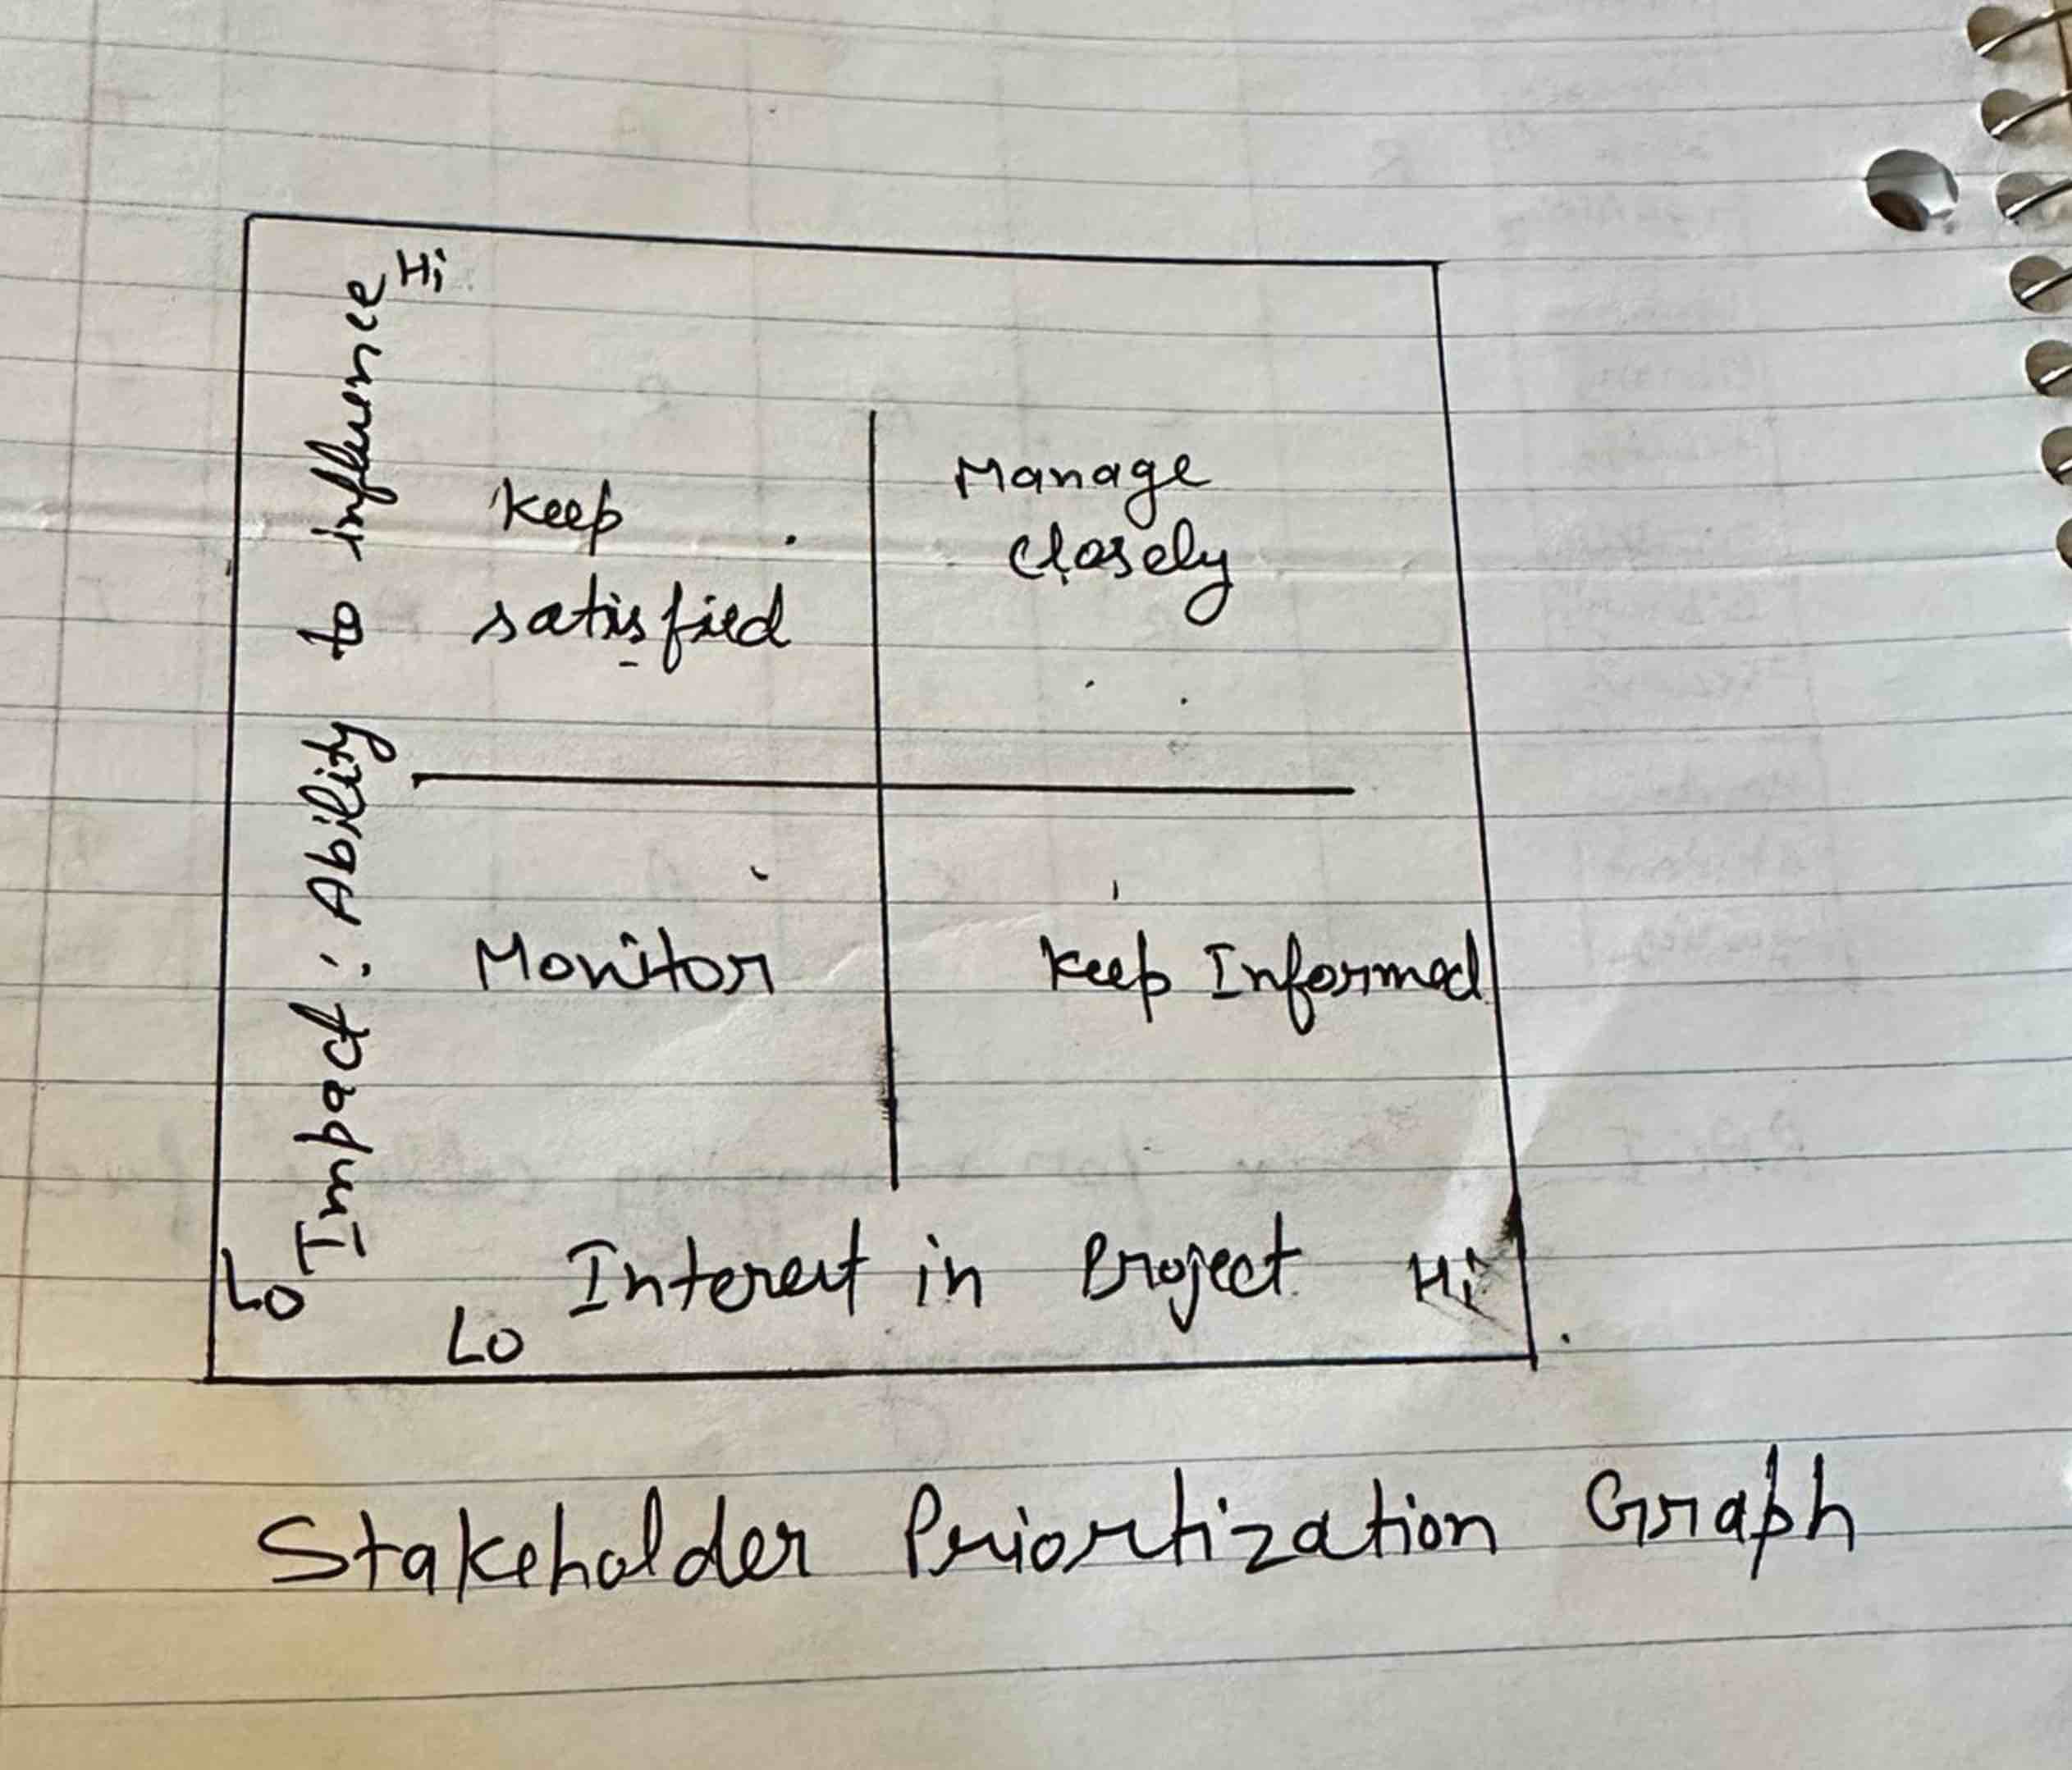 Hi
Impact: Ability to influence
Keep
satisfied
Manage
closely
Monitor
Keep Informed
Lo
Interest in Project
Hi
Lo
Stakeholder Prioritization Graph